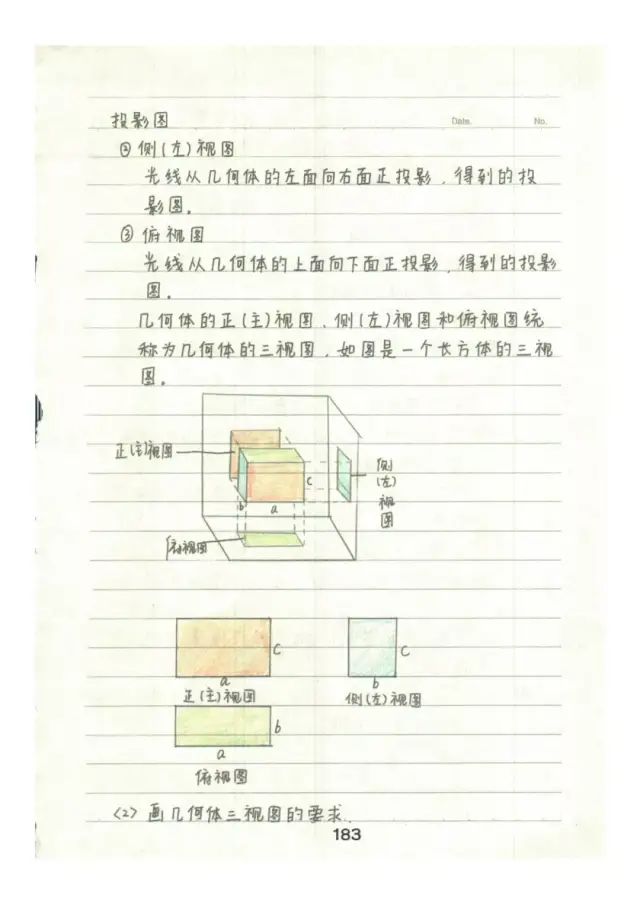 投影图
Date. No.
② 侧(左)视图
光线从几何体的左面向右面正投影，得到的投
影图。
③ 俯视图
光线从几何体的上面向下面正投影，得到的投影
图。
几何体的正(主)视图、侧(左)视图和俯视图统
称为几何体的三视图，如图是一个长方体的三视
图。
正(主)视图
侧
(左)
视
图
c
b
a
俯视图
c
a
正(主)视图
c
b
侧(左)视图
b
a
俯视图
<2> 画几何体三视图的要求.
183